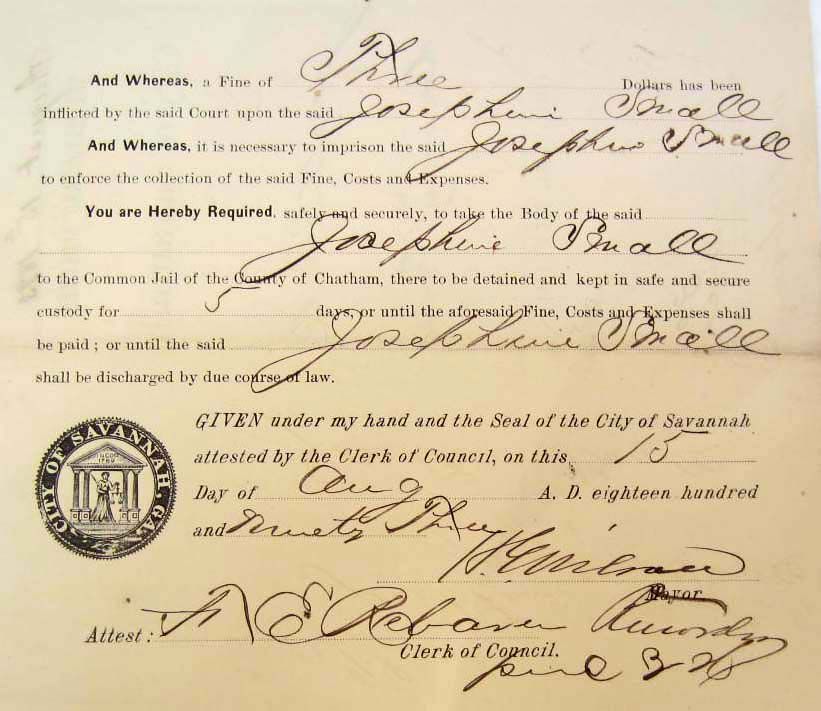 And Whereas, a Fine of Three Dollars has been
inflicted by the said Court upon the said Josephine Small
And Whereas, it is necessary to imprison the said Josephine Small
to enforce the collection of the said Fine, Costs and Expenses.
You are Hereby Required, safely and securely, to take the Body of the said
Josephine Small
to the Common Jail of the County of Chatham, there to be detained and kept in safe and secure
custody for 5 days, or until the aforesaid Fine, Costs and Expenses shall
be paid ; or until the said Josephine Small
shall be discharged by due course of law.
CITY OF SAVANNAH, GA.
GIVEN under my hand and the Seal of the City of Savannah
attested by the Clerk of Council, on this, 15
Day of Aug A. D. eighteen hundred
and Ninety Three
Mayor.
Attest : F E Rebarer Recorder
Clerk of Council.